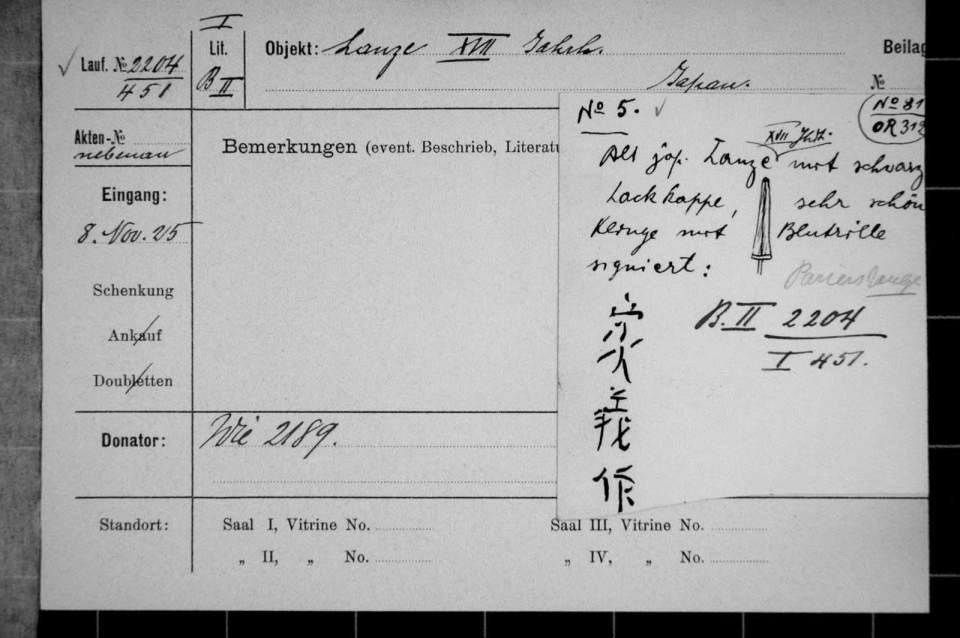 I
Lauf. № 2204
451
Lit.
B II
Objekt: Lanze XVII Jahrh.
Japan.
Beilag
№
Akten-№
nebenan
Bemerkungen (event. Beschrieb, Literatu
Eingang:
8. Nov. 25
Schenkung
Ankauf
Doubletten
Donator: Wie 2189.
Standort:
Saal I, Vitrine No.
Saal III, Vitrine No.
„ II, „ No.
„ IV, „ No.
No 5.
No 81
OR 312
XVII Jhh.
Alt jap. Lanze mit schwarz
Lackkappe, sehr schön
Klinge mit Blutrille
signiert:
Parierstange
B. II 2204
I 451.
宗
次
義
作